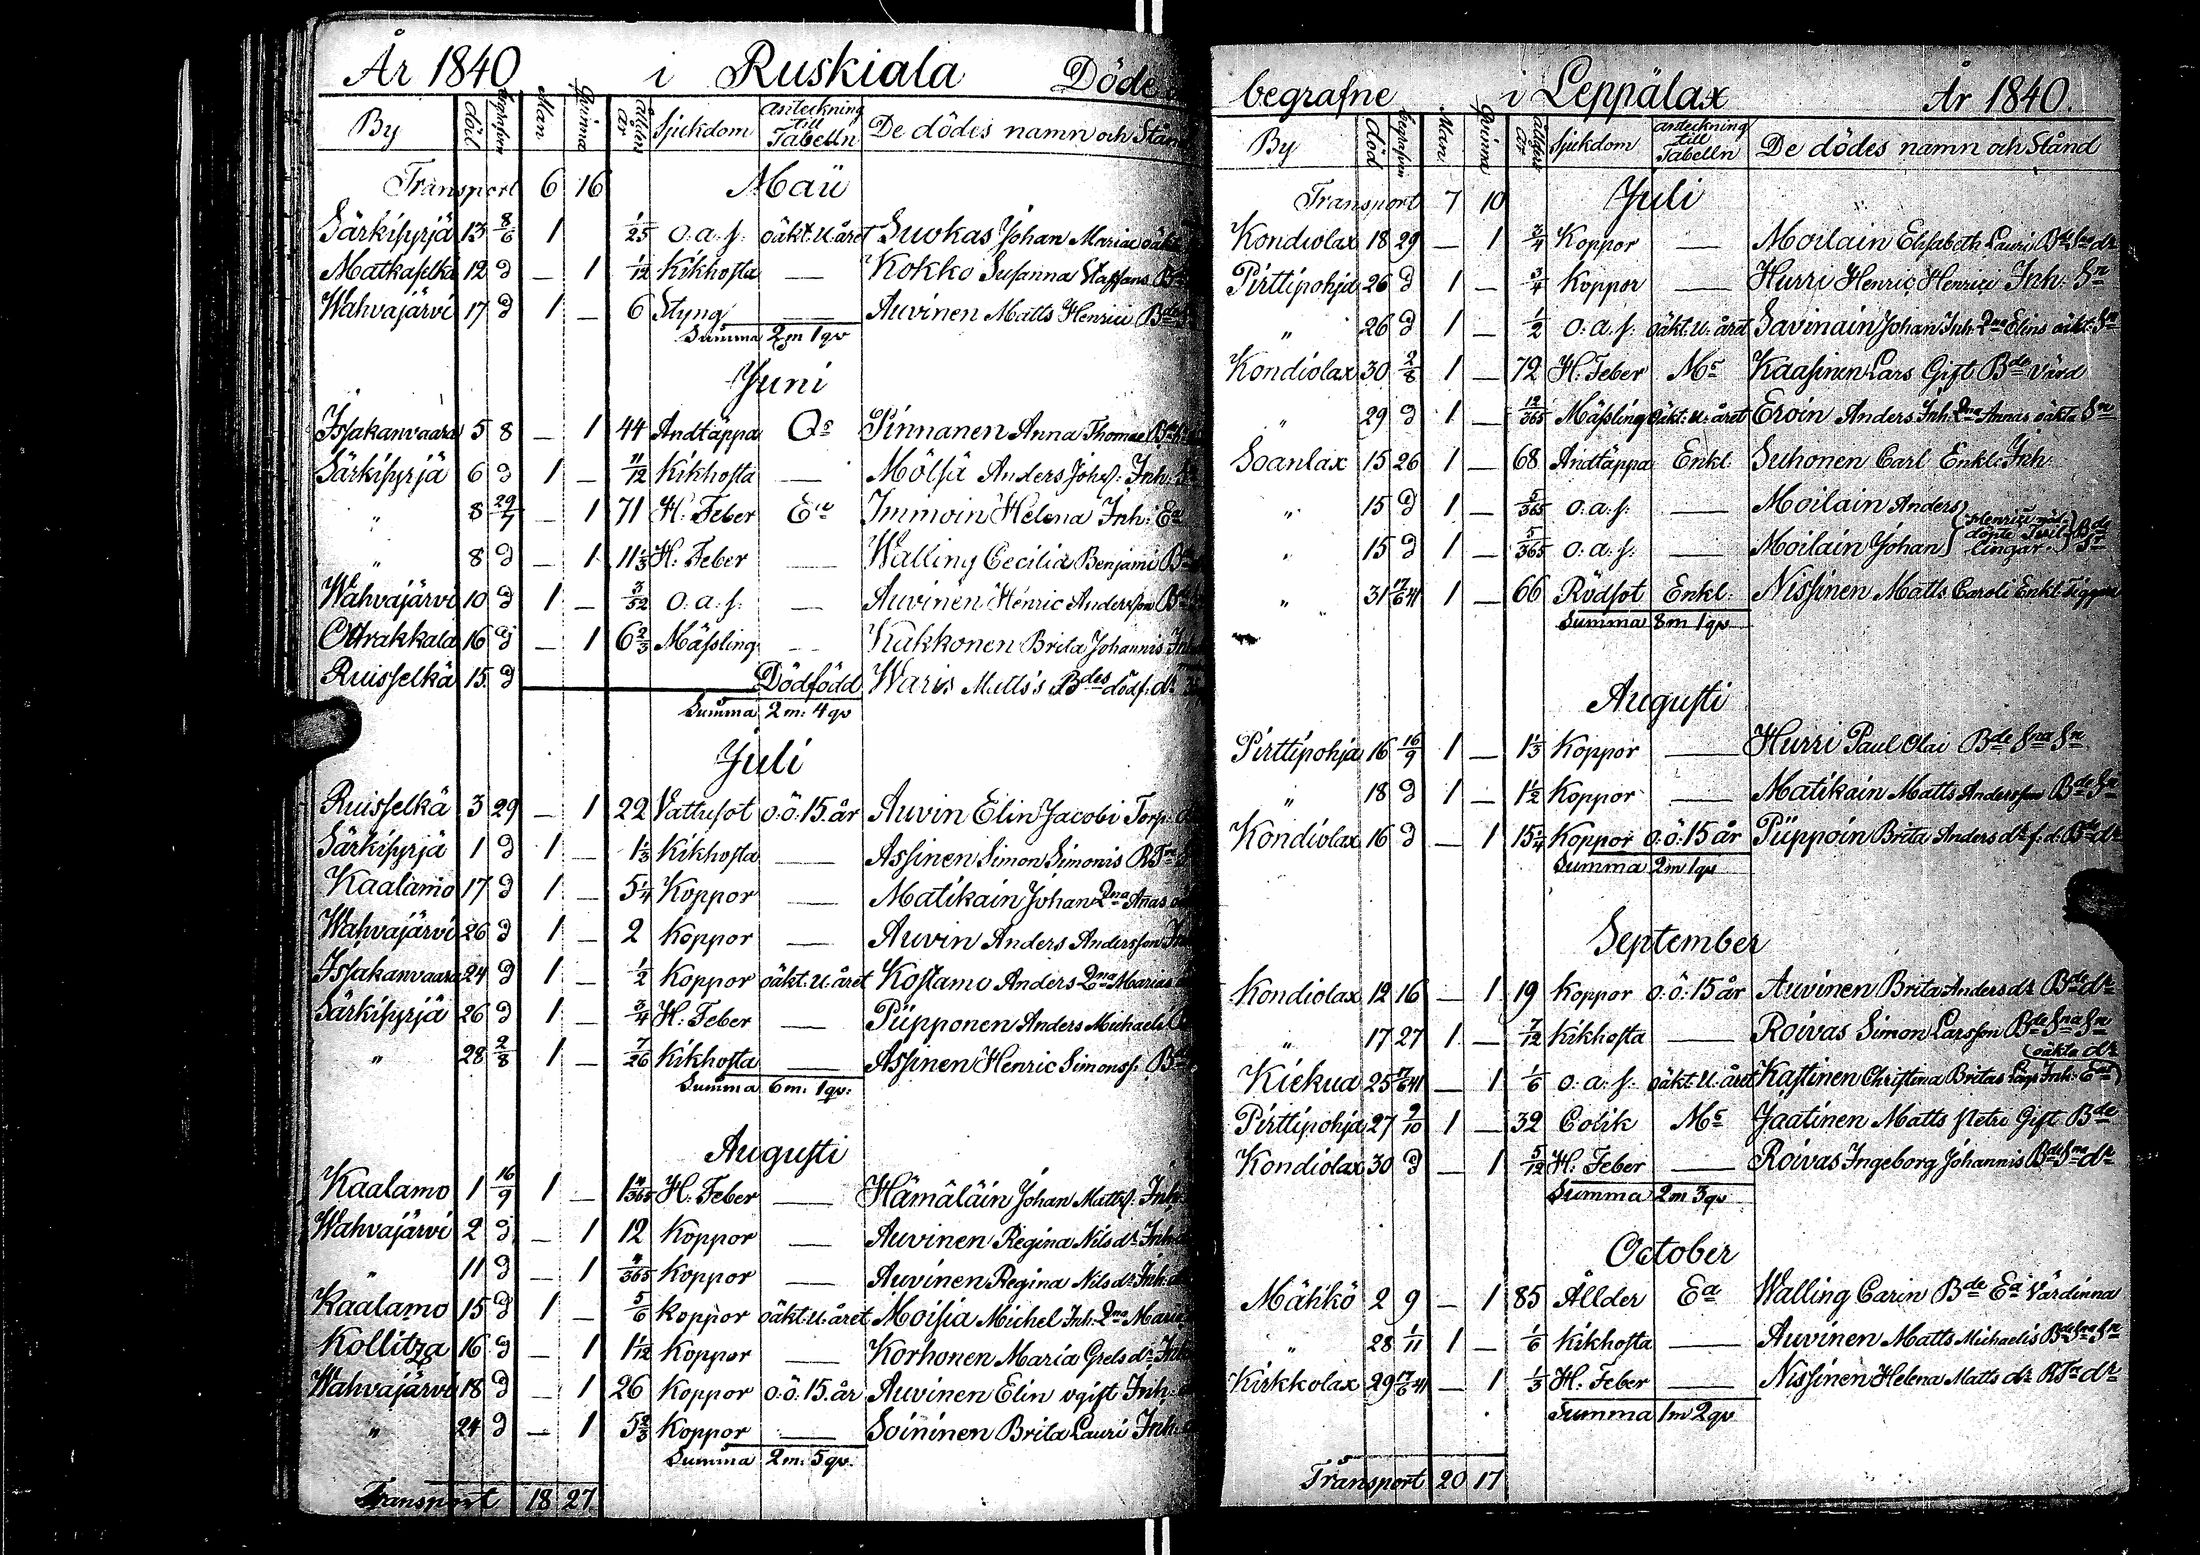 År 1840 i Ruskiala Döde
By död begrafven Man. Qvinna ålldern år Sjukdom anteckning till Tabelln De dödes namn och Stånd
Transport 6 16 Maii
Särkisyrjä 13 8/6 1 1/25 o.a.s. oäkt.u.året Suokas Johan Mariae
Matkaselkä 12 d — 1 1/12 Kikhosta — Kokko Susanna Staffans
Wahvajärvi 17 d 1 — 6 Styng — Auvinen Matts Henrici
Summa 2m 1qv
Juni
Issakanvaara 5 8 — 1 44 Andtäppa Qs Pinnanen Anna Thomae
Särkisyrjä 6 d 1 — 11/12 Kikhosta — Mölsä Anders Johs: Inh:
" 8 29/7 — 1 71 H: Feber Ea Immoin Helena Inh: Ea
" 8 d — 1 11 1/3 H: Feber — Walling Cecilia Benjami
Wahvajärvi 10 d 1 — 3/52 o.a.s. — Auvinen Henric Andersson
Ottrakkala 16 d — 1 6 2/3 Mässling — Kakkonen Brita Johannis
Ruisselkä 15 d Dödfödd Waris Matts's Bdes dödf: dr
Summa 2m: 4qv
Juli
Ruisselkä 3 29 — 1 22 Vattusot o.ö.15.år Auvin Elin Jacobi Torp:
Särkisyrjä 1 d 1 — 1 1/3 Kikhosta — Assinen Simon Simonis
Kaalamo 17 d 1 — 5 1/4 Koppor — Matikain Johan Qna Anas
Wahvajärvi 26 d 1 — 2 Koppor — Auvin Anders Andersson
Issakanvaara 24 d 1 — 1/2 Koppor oäkt.u.året Kostamo Anders Qna Marias
Särkisyrjä 26 d 1 — 3/4 H: Feber — Püpponen Anders Michaeli
" 28 2/8 1 — 7/26 Kikhosta — Assinen Henric Simonss:
Summa 6m: 1qv:
Augusti
Kaalamo 1 16/9 1 — H: Feber — Hämäläin Johan Mattss: Inh:
Wahvajärvi 2 d — 1 12 Koppor — Auvinen Regina Nils dr Inh:
" 11 d — 1 Koppor — Auvinen Regina Nils dr Inh:
Kaalamo 15 d 1 — 5/6 Koppor oäkt.u.året Moisia Michel Inh: Qna Maria
Kollitza 16 d — 1 1 1/12 Koppor — Korhonen Maria Grels dr
Wahvajärvi 18 d — 1 26 Koppor o.ö.15.år Auvinen Elin ogift Inh:
" 24 d — 1 5 2/3 Koppor — Soininen Brita Lauri Inh:
Summa 2m: 5qv:
Transport 18 27
begrafne i Leppälax År 1840.
By död begrafven Man. Qvinna ålldern år Sjukdom anteckning till Tabelln De dödes namn och Stånd
Transport 7 10 Juli
Kondiolax 18 29 — 1 3/4 Koppor — Moilain Elisabeth Lauri Bde Sns dr
Pirttipohja 26 d 1 — 3/4 Koppor — Hurri Henric Henrici Inh: Sn
" 26 d 1 — 1/2 o.a.s. oäkt.u.året Savinain Johan Inh: Qna Elins oäkt: Sn
Kondiolax 30 2/8 1 — 72 H: Feber Ms Kaasinen Lars Gift Bde Värd
" 29 d 1 — 12/365 Mässling oäkt.u.året Eroin Anders Inh: Qna Annas oäkta Sn
Soanlax 15 26 1 — 68 Andtäppa Enkl: Suhonen Carl Enkl: Inh:
" 15 d 1 — 5/365 o.a.s. — Moilain Anders
" 15 d 1 — 5/365 o.a.s. — Moilain Johan } Henrici nöd döpte Tvillingar Bde Sr
" 31 17/6 41 1 — 66 Rödsot Enkl: Nissinen Matts Caroli Enkl: Tiggare
Summa 8m 1qv
Augusti
Pirttipohja 16 16/9 1 — 1 1/3 Koppor — Hurri Paul Olai Bde Sna Sn
" 18 d 1 — 1 1/2 Koppor — Matikain Matts Andersson Bde Sn
Kondiolax 16 d — 1 15 1/4 Koppor o.ö.15 år Püppoin Brita Anders dr f: d: Bde dr
Summa 2m 1qv
September
Kondiolax 12 16 — 1 19 Koppor o.ö:15 år Auvinen Brita Anders dr Bde dr
" 17 27 1 — 7/12 Kikhosta — Roivas Simon Larsson Bde Sna Sn
Kiekua 25 17/6 41 — 1 1/6 o.a.s. oäkt.u.året Kastinen Christina Britas Lars Inh: Eas oäkta dr
Pirttipohja 27 9/10 1 — 32 Colik Ms Jaatinen Matts Petri Gift Bde
Kondiolax 30 d — 1 5/12 H: Feber — Roivas Ingeborg Johannis Bde Sns dr
Summa 2m 3qv
October
Mähkö 2 9 — 1 85 Ållder Ea Walling Carin Bde Ea Värdinna
" 28 1/11 1 — 1/6 Kikhosta — Auvinen Matts Michaelis Bde Sna Sn
Kirkkolax 29 17/6 41 — 1 1/3 H: Feber — Nissinen Helena Matts dr RTa dr
Summa 1m 2qv
Transport 20 17